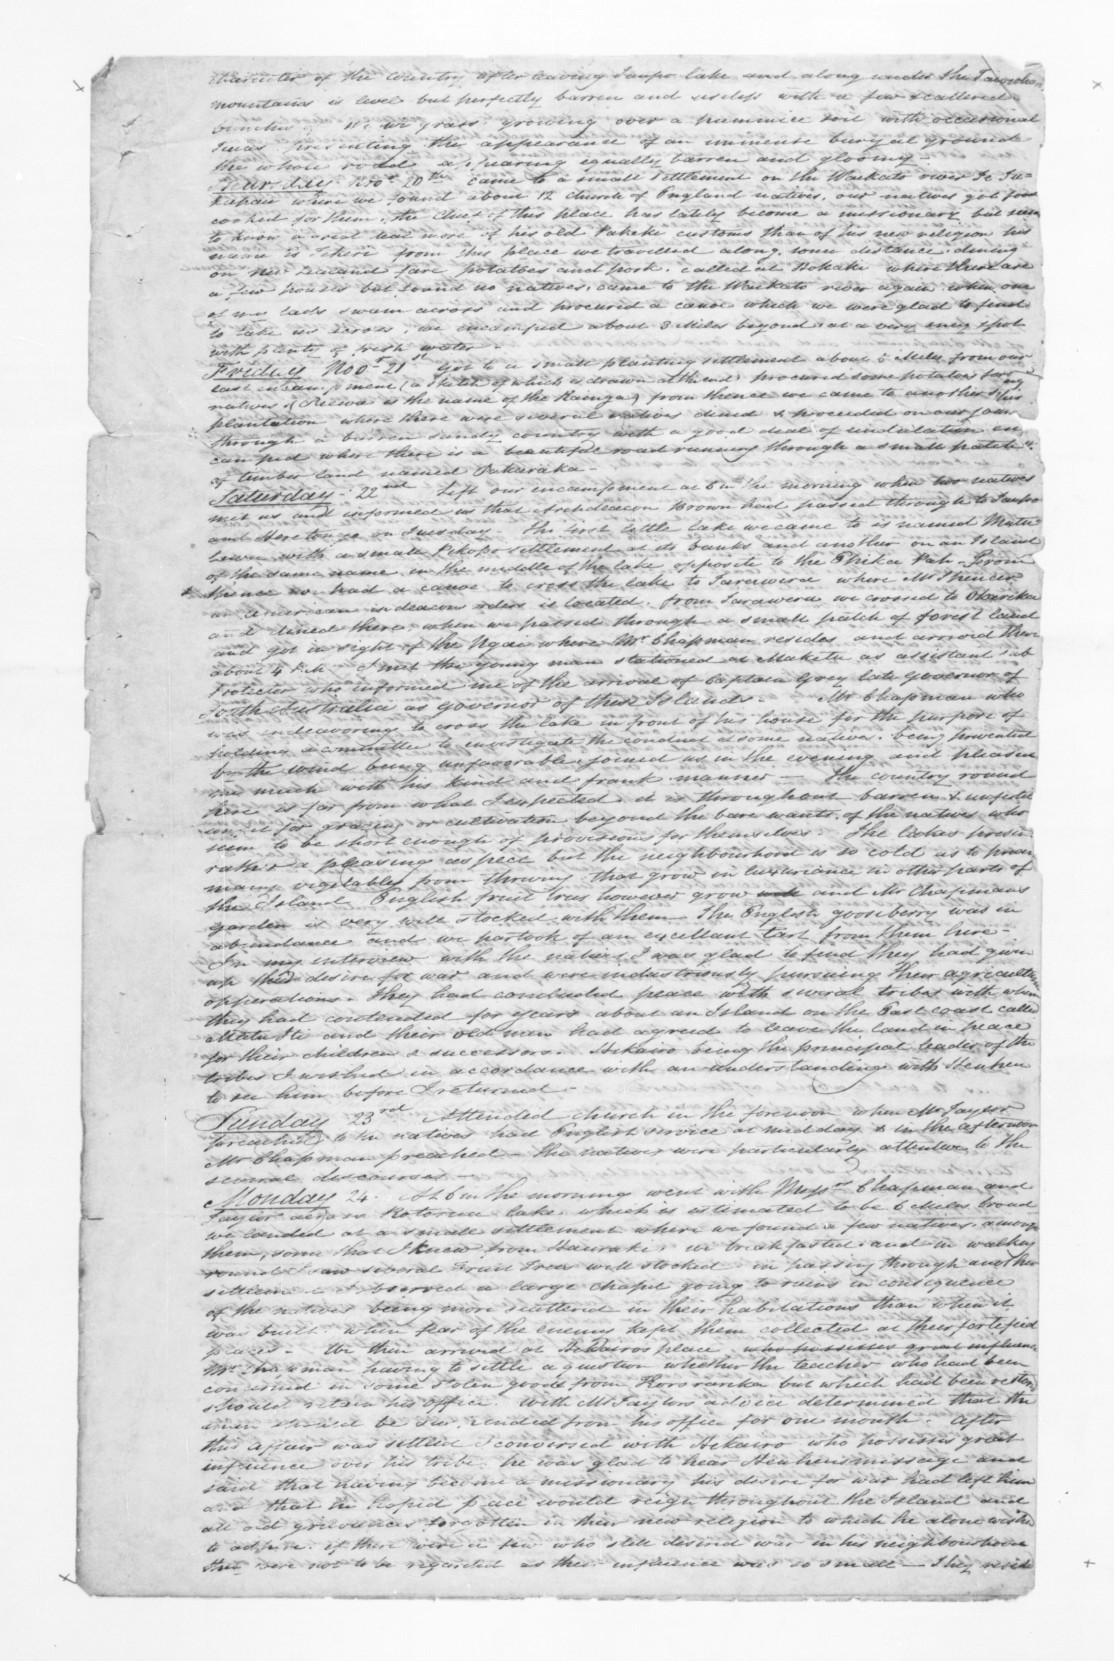 character of the country after leaving Taupo lake and along under the
mountains is level but perfectly barren and useless with a few scattered
bunches of grass growing over a pummice soil with occasional
presenting the appearance of an immense burying ground
the whole appearing equally barren and gloomy —
Thursday Novr 20th came to a small settlement on the Waikato river
where we found about 12 church of England natives, our natives got food
cooked for them, the chief of this place has lately become a missionary but seems
to know a great deal more of his old Pakeke customs than of his new religion his
name is from this place we travelled along some distance, dining
on New Zealand fare potatoes and pork. called at where there are
a few houses but found no natives, came to the Waikato river again when one
of our lads swam across and procured a canoe which we were glad to find
to take us across, we encamped about 3 Miles beyond at a very spot
with plenty of fresh water —
Friday Novr 21st got to a small planting settlement about 6 Miles from our
last encampment (a sketch of which is drawn at the end) procured some potatoes for
natives ( is the name of the Kainga) from thence we came to another
plantation where there were several natives dined & proceeded on our
through a barren sandy country with a good deal of undulation
camped where there is a beautiful road running through a small patch
of timber land named Pakaraka —
Saturday 22nd Left our encampment at 6 in the morning when two natives
met us and informed us that Archdeacon Brown had passed through to Taupo
and on Tuesday. The first little lake we came to is named
with a small Pikopo settlement at its banks and another on an Island
of the same name in the middle of the lake opposite to the Pah. From
thence we had a canoe to cross the lake to Tarawera where Mr Spencer
an american in deacons orders is located. from Tarawera we crossed to Okarika
and dined there, when we passed through a small patch of forest land
and got in sight of the Ngai where Mr Chapman resides and arrived there
about 4 P.M. I met the young man stationed at Maketu as assistant sub
Protector who informed me of the arrival of Captain Grey late governor of
South Australia as governor of these Islands. Mr Chapman who
was endeavoring to cross the lake in front of his house for the purpose of
holding a committee to investigate the conduct of some natives, being prevented
by the wind being unfavorable, joined us in the evening and pleased
me much with his kind and frank manner — The country round
here is far from what I expected, it is throughout barren &
for grazing or cultivation beyond the bare wants of the natives who
seem to be short enough of provisions for themselves. The lakes present
rather a pleasing aspect but the neighbourhood is so cold as to prevent
many vegetables from thriving that grow in luxuriance in other parts of
the Island, English fruit trees however grow and Mr Chapmans
garden is very well stocked with them. The English gooseberry was in
abundance and we partook of an excellent tart from them here —
In my interview with the natives I was glad to find they had given
up their desire for war and were industriously pursuing their agricultural
opperations. They had concluded peace with several tribes with whom
they had contended for years about an Island on the East coast called
and their old men had agreed to leave the land in peace
for their children & successors. Hikairo being the principal leader of the
tribes I wished in accordance with an understanding with Heuheu
to see him before I returned —
Sunday 23rd Attended church in the forenoon when Mr Taylor
preached to the natives had English service at midday & in the afternoon
Mr Chapman preached — the natives were particularly attentive to the
several discourses —
Monday 24. At 6 in the morning went with Messrs Chapman and
Taylor across Rotorua lake, which is estimated to be 6 Miles broad
we landed at a small settlement where we found a few natives, among
them, some that I knew from Hauraki, we breakfasted, and in walking
round I saw several Fruit Trees well stocked. in passing through another
settlement I observed a large chapel going to ruins in consequence
of the natives being more scattered in their habitations than when it
was built. when fear of the enemy kept them collected at their fortified
places — We then arrived at Hikairos place who possesses great influence
Mr Chapman having to settle a question whether the teacher who had been
concerned in some stolen goods from Kororarika but which had been restored
should retain his office. With Mr Taylors advice determined that the
man should be suspended from his office for one month. After
this affair was settled I conversed with Hikairo who possesses great
influence over his tribe. he was glad to hear Heuheus message and
said that having become a missionary his desire for war had left him
and that he hoped peace would reign throughout the Island and
all old grievances forgotten in their new religion to which he alone wished
to adhere. if there were a few who still desired war in his neighbourhood
they were not to be regarded as their influence was so small — They